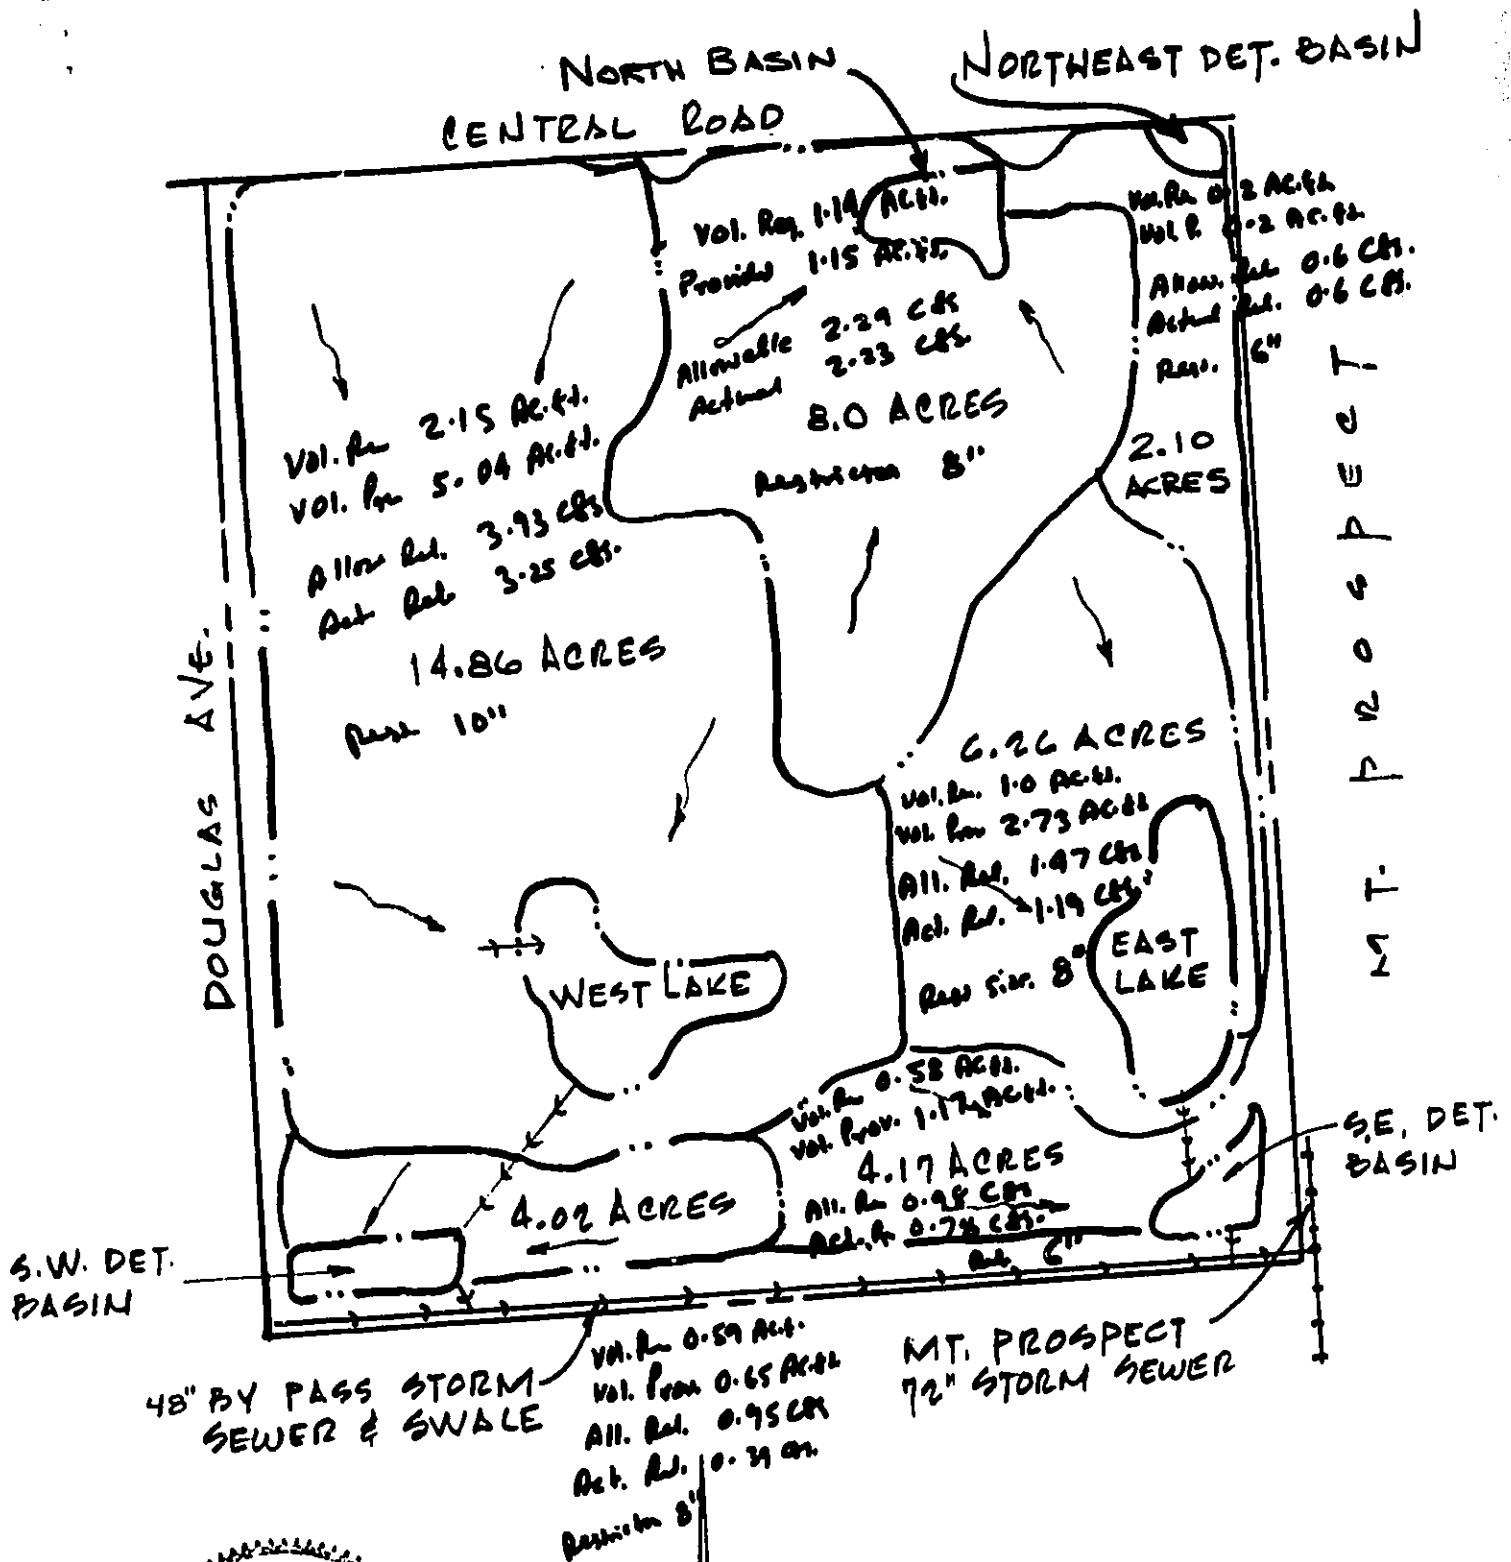 NORTH BASIN
NORTHEAST DET. BASIN
CENTRAL ROAD
Vol. Req. 1.14 Ac.ft.
Provided 1.15 Ac.ft.
Allowable 2.29 cfs
Actual 2.23 cfs.
8.0 ACRES
Restrictor 8"
0.2 Ac.ft.
0.2 Ac.ft.
Allow. Rel. 0.6 Cfs.
Actual Rel. 0.6 Cfs.
Res. 6"
2.10
ACRES
MT. PROSPECT
Vol. Re 2.15 Ac.ft.
Vol. Pro 5.04 Ac.ft.
Allow Rel. 3.93 cfs
Act. Rel. 3.25 cfs.
14.86 ACRES
Rest. 10"
DOUGLAS AVE.
6.26 ACRES
Vol. Re. 1.0 Ac.ft.
Vol. Prov 2.73 Ac.ft
All. Rel. 1.47 Cfs
Act. Rel. 1.19 Cfs.
Rest Size. 8"
EAST
LAKE
WEST LAKE
Vol. Re 0.58 Ac.ft.
Vol. Prov. 1.17 Ac.ft.
4.17 ACRES
All. Re 0.98 Cfs
Act. R 0.78 Cfs.
6"
4.02 ACRES
S.E. DET.
BASIN
S.W. DET.
BASIN
48" BY PASS STORM
SEWER & SWALE
MT. PROSPECT
72" STORM SEWER
Vol. Re 0.59 Ac.f.
Vol. Prov 0.65 Ac.ft
All. Rel. 0.95 Cfs
Act. Rel. 0.39 Cfs.
Restrictor 8"